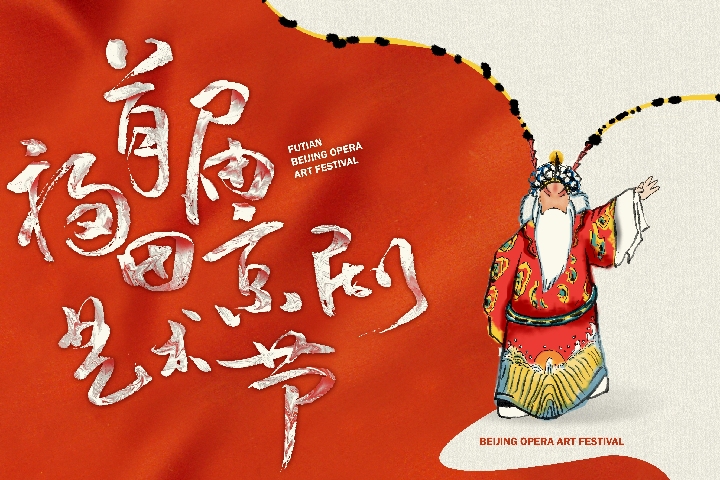 首届
福田京剧
艺术节
FUTIAN
BEIJING OPERA
ART FESTIVAL
BEIJING OPERA ART FESTIVAL